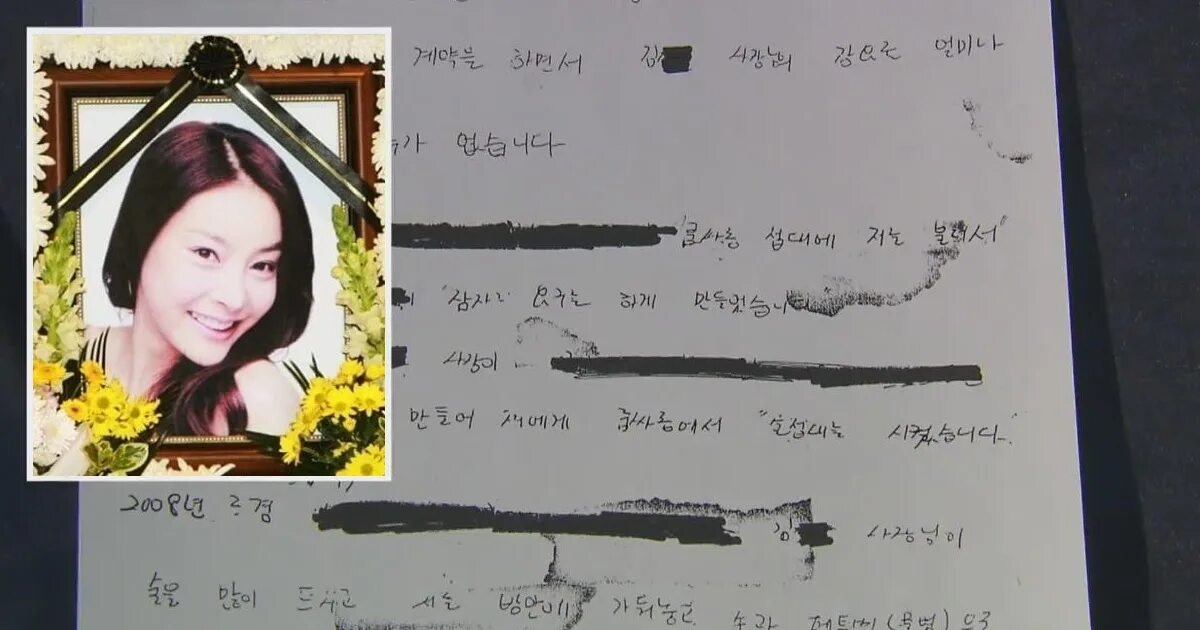 계약을 하면서 김 사장님의 강요로 얼마나
수가 없습니다
룸싸롱 접대에 저를 불러서"
"잠자리 요구를 하게 만들었습니
사장이
만들어 룸싸롱에서 "술접대를 시켰습니다."
2008년 경 김 사장님이
술을 많이 드시고 저를 방안에 가둬놓고 손과 페트병 으로